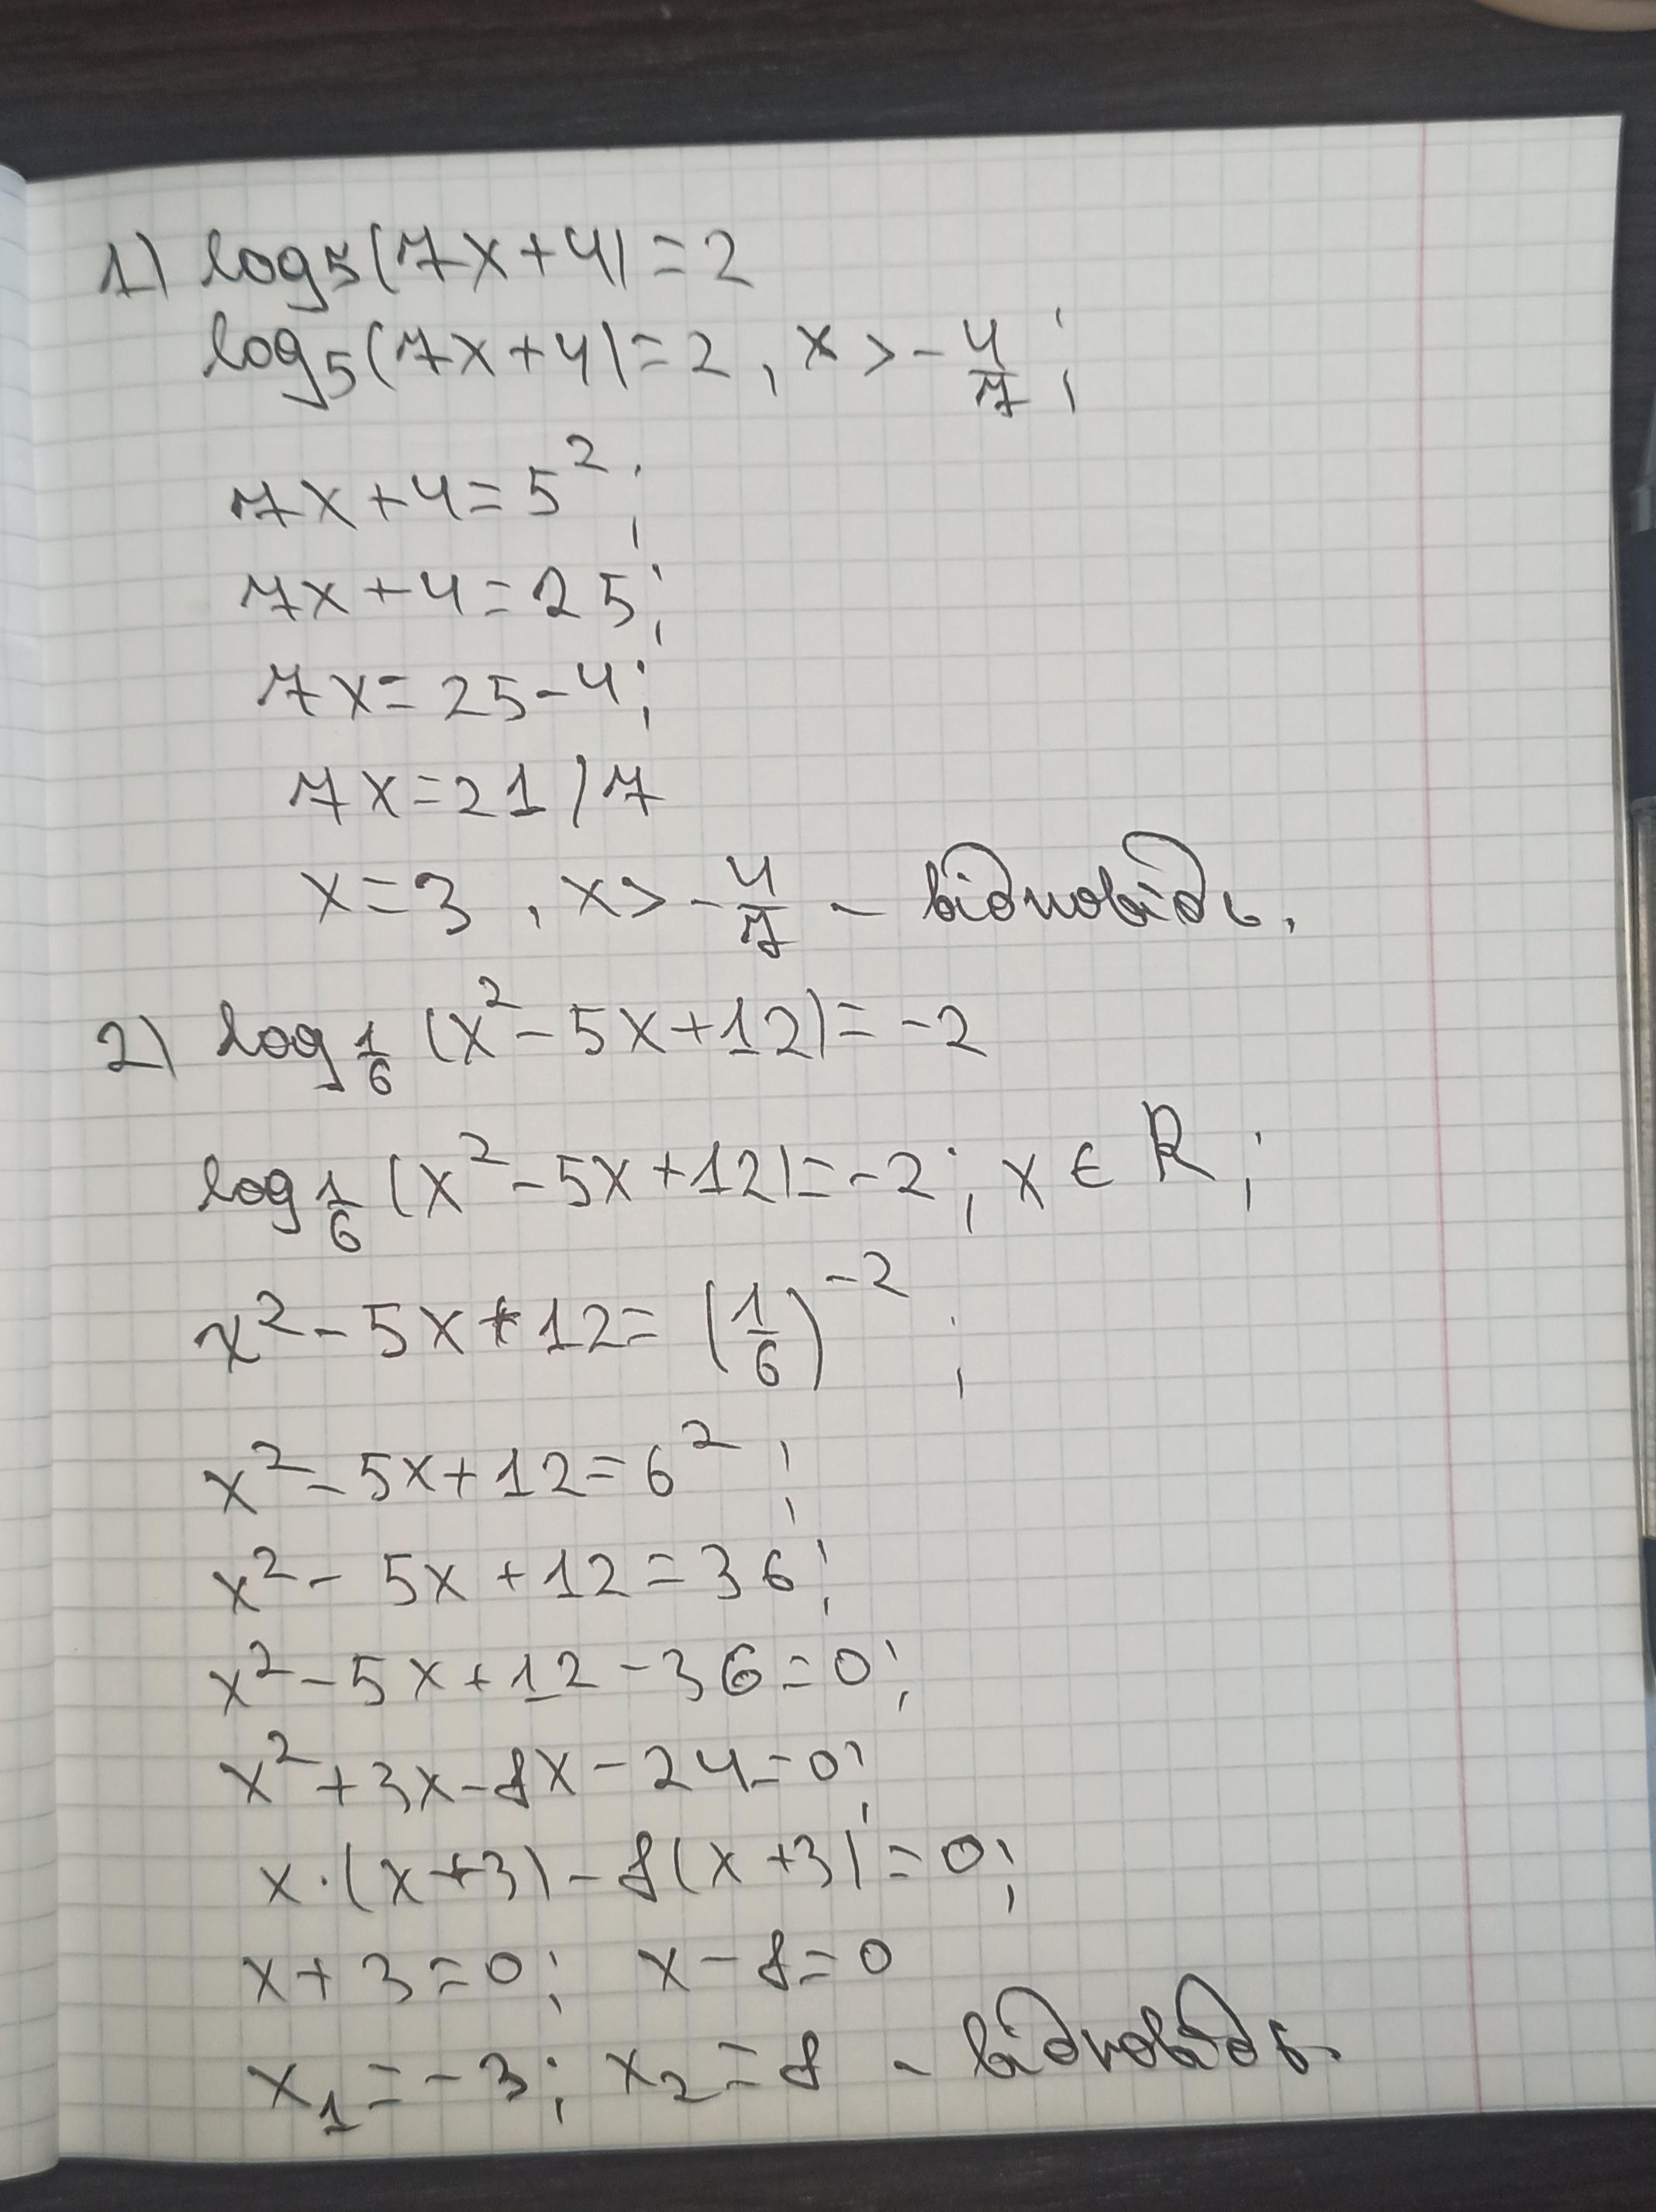 1) log₅(7x+4)=2
log₅(7x+4)=2, x>-4/7;
7x+4=5²;
7x+4=25;
7x=25-4;
7x=21/7
x=3, x>-4/7 - відповідь.
2) log₁/₆(x²-5x+12)=-2
log₁/₆(x²-5x+12)=-2; x∈R;
x²-5x+12=(1/6)⁻²;
x²-5x+12=6²;
x²-5x+12=36;
x²-5x+12-36=0;
x²+3x-8x-24=0;
x·(x+3)-8(x+3)=0;
x+3=0; x-8=0
x₁=-3; x₂=8 - відповідь.